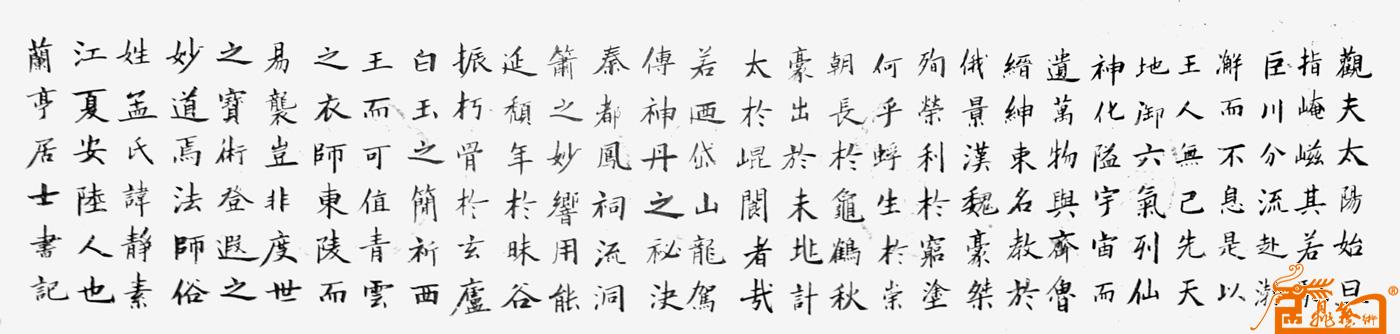 觀夫太陽始旦
指崦嵫其若
巨川分流赴
澥而不息是以
王人無已先天
地御六氣列仙
神化隘宇宙而
遺萬物與齊魯
縉紳東名教於
俄景漢魏豪桀
殉榮利於窮塗
何乎蜉生於崇
朝長於龜鶴秋
豪出於未兆計
太於崐閬者哉
若迺岱山龍駕
傳神丹之秘決
秦都鳳祠流洞
簫之妙響用能
延頹年於昧谷
振朽骨於玄廬
白玉之簡祈西
王而可值青雲
之衣師東陵而
易襲豈非度世
之寶術登遐之
妙道焉法師俗
姓孟氏諱靜素
江夏安陸人也
蘭亭居士書記